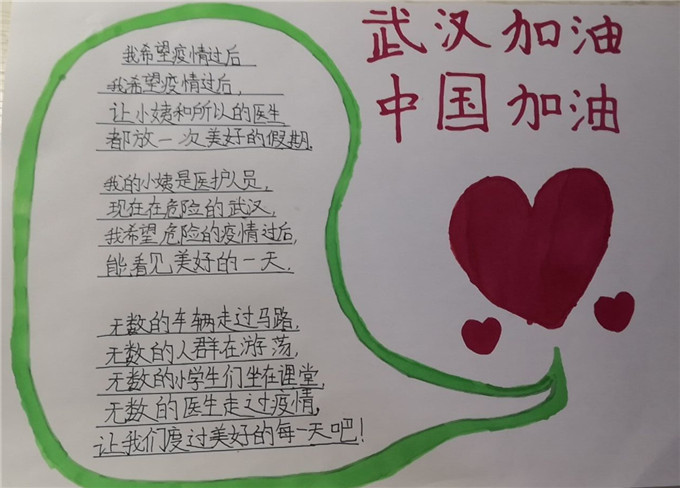 我希望疫情过后
我希望疫情过后,
让小姨和所以的医生
都放一次美好的假期.
我的小姨是医护人员,
现在在危险的武汉,
我希望危险的疫情过后,
能看见美好的一天.
无数的车辆走过马路,
无数的人群在游荡,
无数的小学生们坐在课堂,
无数的医生走过疫情,
让我们度过美好的每一天吧!
武汉加油
中国加油